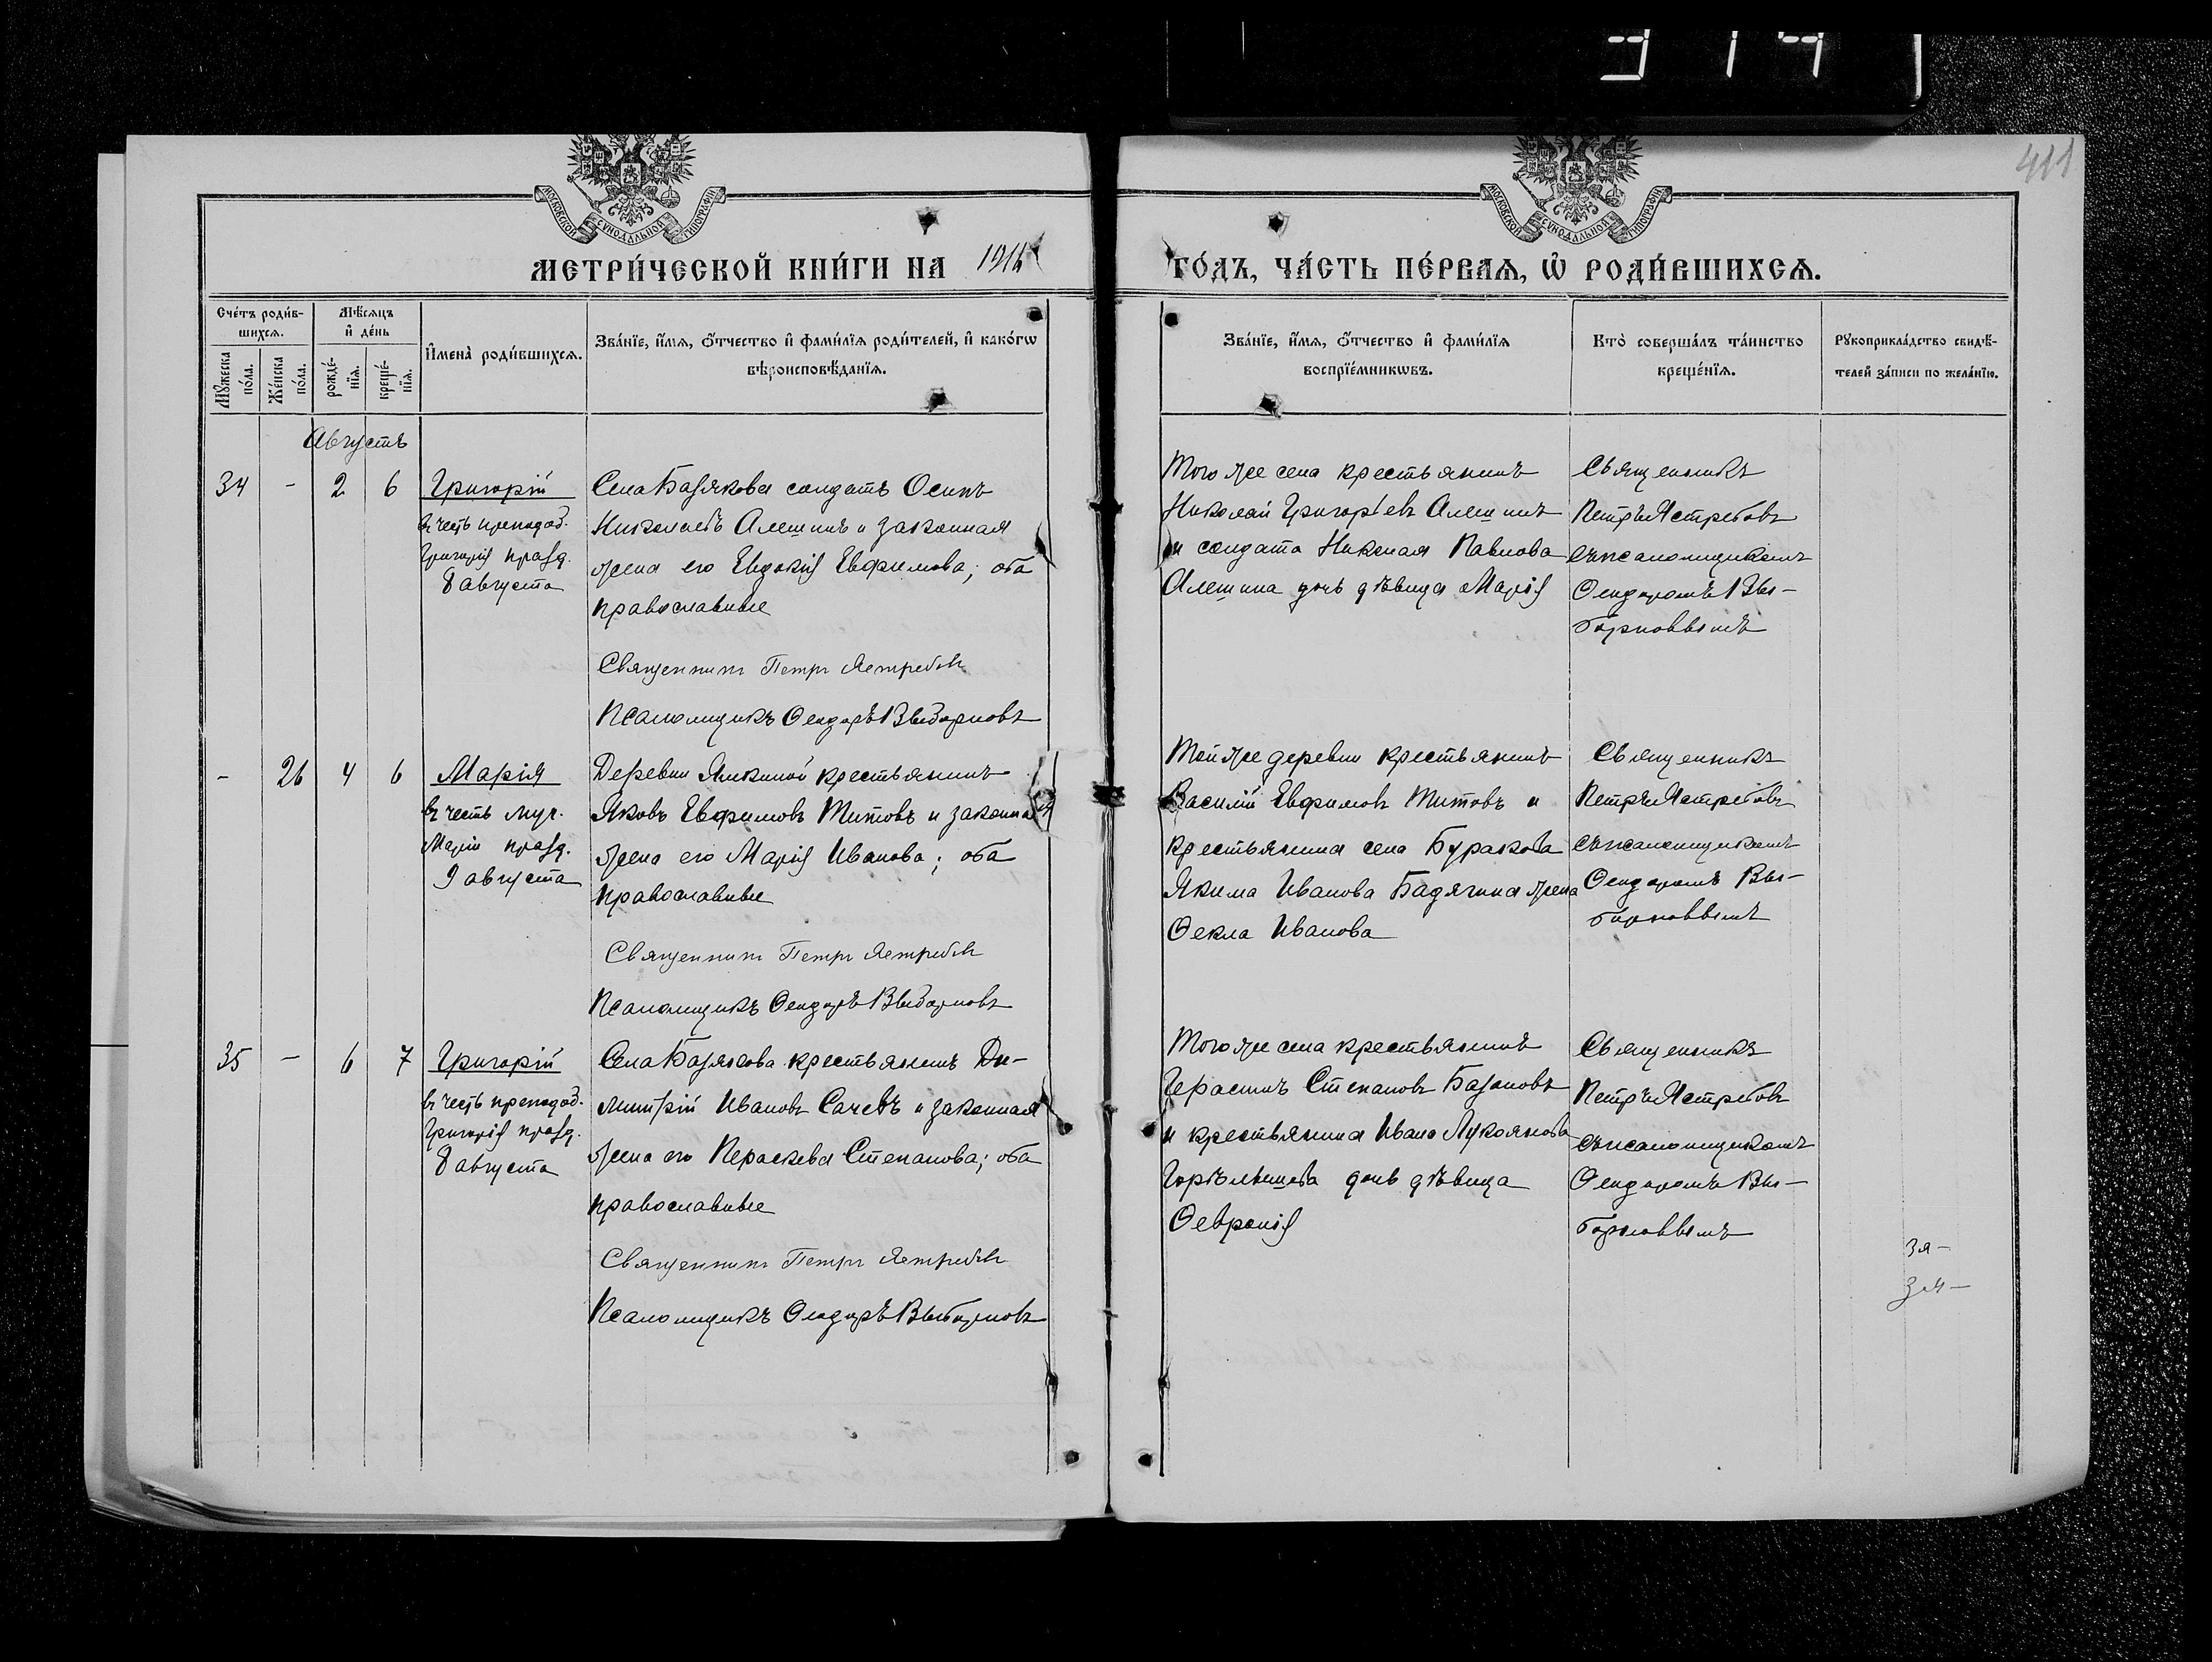 314
411
МОСКОВСКОЙ СѴНОДАЛЬНОЙ ТИПОГРАФІИ
МОСКОВСКОЙ СѴНОДАЛЬНОЙ ТИПОГРАФІИ
МЕТРИ́ЧЕСКОЙ КНИ́ГИ НА 1916
ГО́ДЪ, ЧА́СТЬ ПЕ́РВАЯ, Ѿ РОДИ́ВШИХСЯ.
Сче́тъ роди́в-
шихся.
Мꙋжеска по́ла.
Же́нска по́ла.
Мѣ́сяцъ
и҆ де́нь
рожде́-
нїя.
креще́-
нїя.
И҆мена̀ роди́вшихся.
Зва́нїе, и҆́мя, ѻ҆́тчество и҆ фами́лїя роди́телей, и҆ како́гѡ
вѣроисповѣ́данїя.
Зва́нїе, и҆́мя, ѻ҆́тчество и҆ фами́лїя
воспрїе́мникѡвъ.
Кто̀ соверша́лъ та́инство
креще́нїя.
Рꙋкоприкла́дство свидѣ́-
телей за́писи по жела́нїю.
Августъ
34 - 2 6
Григорій
въ честь преподоб.
Григорія празд.
8 августа
Села Базякова солдатъ Осипъ
Николаевъ Алешинъ и законная
жена его Евдокія Евфимова; оба
православные
Священникъ Петръ Ястребовъ
Псаломщикъ Ѳеодоръ Выборновъ
Того же села крестьянинъ
Николай Григорьевъ Алешинъ
и солдата Николая Павлова
Алешина дочь дѣвица Марія
Священникъ
Петръ Ястребовъ
съ псаломщикомъ
Ѳеодоромъ Вы-
борновымъ
- 26 4 6
Марія
въ честь муч.
Маріи празд.
9 августа
Деревни Ямкиной крестьянинъ
Яковъ Евфимовъ Титовъ и законная
жена его Марія Иванова; оба
православные
Священникъ Петръ Ястребовъ
Псаломщикъ Ѳеодоръ Выборновъ
Той же деревни крестьянинъ
Василій Евфимовъ Титовъ и
крестьянина села Буракова
Якима Иванова Бадягина жена
Ѳекла Иванова
Священникъ
Петръ Ястребовъ
съ псаломщикомъ
Ѳеодоромъ Вы-
борновымъ
35 - 6 7
Григорій
въ честь преподоб.
Григорія празд.
8 августа
Села Базякова крестьянинъ Ди-
митрій Ивановъ Сачевъ и законная
жена его Пераскева Степанова; оба
православные
Священникъ Петръ Ястребовъ
Псаломщикъ Ѳеодоръ Выборновъ
Того же села крестьянинъ
Герасимъ Степановъ Базановъ
и крестьянина Ивана Лукоянова
дочь дѣвица
Ѳевронія
Священникъ
Петръ Ястребовъ
съ псаломщикомъ
Ѳеодоромъ Вы-
борновымъ